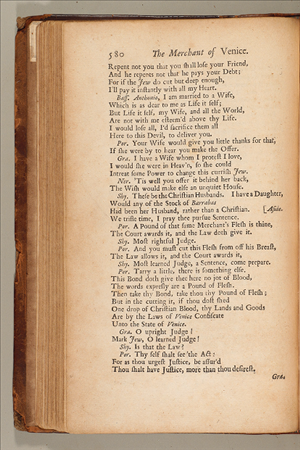 580 The Merchant of Venice.
Repent not you that you shall lose your Friend,
And he repents not that he pays your Debt;
For if the Jew do cut but deep enough,
I'll pay it instantly with all my Heart.
Bass. Anthonio, I am married to a Wife,
Which is as dear to me as Life it self;
But Life it self, my Wife, and all the World,
Are not with me esteem'd above thy Life.
I would lose all, I'd sacrifice them all
Here to this Devil, to deliver you.
Por. Your Wife would give you little thanks for that,
If she were by to hear you make the Offer.
Gra. I have a Wife whom I protest I love,
I would she were in Heav'n, so she could
Intreat some Power to change this currish Jew.
Ner. 'Tis well you offer it behind her back,
The Wish would make else an unquiet House.
Shy. These be the Christian Husbands. I have a Daughter,
Would any of the Stock of Barrabas
Had been her Husband, rather than a Christian. [Aside.
We trifle time, I pray thee pursue Sentence.
Por. A Pound of that same Merchant's Flesh is thine,
The Court awards it, and the Law doth give it.
Shy. Most rightful Judge.
Por. And you must cut this Flesh from off his Breast,
The Law allows it, and the Court awards it.
Shy. Most learned Judge, a Sentence, come prepare.
Por. Tarry a little, there is something else.
This Bond doth give thee here no jot of Blood,
The words expresly are a Pound of Flesh.
Then take thy Bond, take thou thy Pound of Flesh;
But in the cutting it, if thou dost shed
One drop of Christian Blood, thy Lands and Goods
Are by the Laws of Venice Confiscate
Unto the State of Venice.
Gra. O upright Judge!
Mark Jew, O learned Judge!
Shy. Is that the Law?
Por. Thy self shalt see the Act;
For as thou urgest Justice, be assur'd
Thou shalt have Justice, more than thou desirest.
Gra.